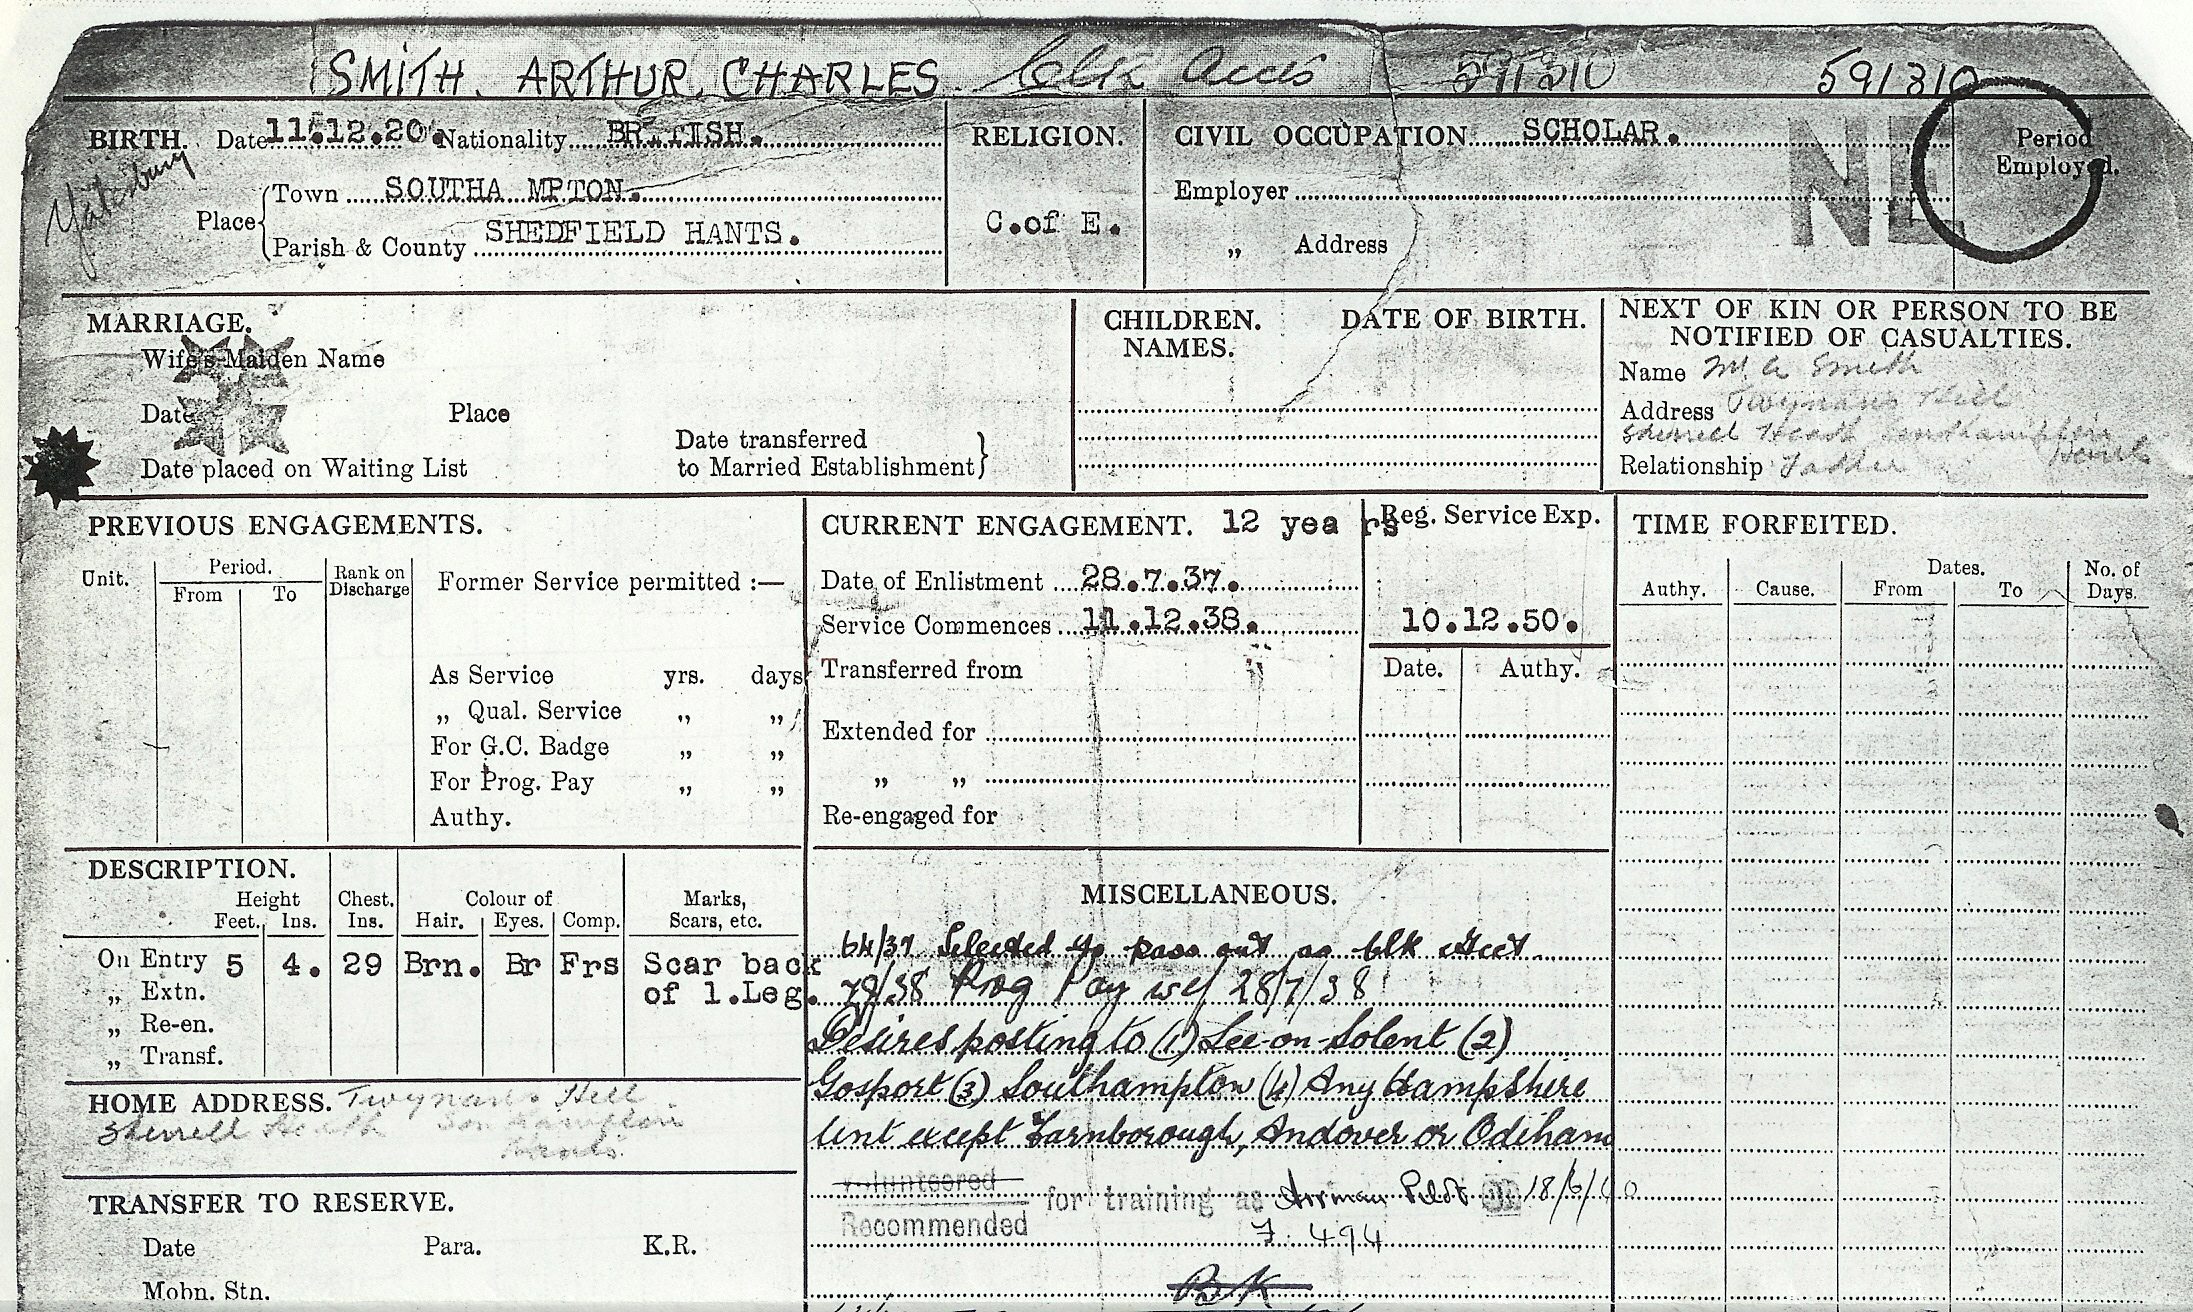 SMITH. ARTHUR. CHARLES. Clk Accts 591310 591310
BIRTH. Date 11.12.20. Nationality BRITISH.
RELIGION.
CIVIL OCCUPATION SCHOLAR.
Period
Employed.
Yatesbury
Place
Town SOUTHA MPTON.
Parish & County SHEDFIELD HANTS.
C.of E.
Employer
„ Address
NE
MARRIAGE.
Wife's Maiden Name
Date Place
Date placed on Waiting List
Date transferred
to Married Establishment
CHILDREN. DATE OF BIRTH.
NAMES.
NEXT OF KIN OR PERSON TO BE
NOTIFIED OF CASUALTIES.
Name Mr A Smith
Address Twynans Hill
Shirrell Heath Southampton
Hants
Relationship Father
PREVIOUS ENGAGEMENTS.
Unit. Period. Rank on
Discharge
From To
Former Service permitted :—
As Service yrs. days
„ Qual. Service „ „
For G.C. Badge „ „
For Prog. Pay „ „
Authy.
CURRENT ENGAGEMENT. 12 yea rs
Reg. Service Exp.
Date of Enlistment 28.7.37.
Service Commences 11.12.38. 10.12.50.
Transferred from Date. Authy.
Extended for
„ „
Re-engaged for
TIME FORFEITED.
Authy. Cause. Dates. No. of
Days.
From To
DESCRIPTION.
Height Chest. Colour of Marks,
Feet. Ins. Ins. Hair. Eyes. Comp. Scars, etc.
On Entry 5 4. 29 Brn. Br Frs Scar back
of l.Leg.
„ Extn.
„ Re-en.
„ Transf.
HOME ADDRESS. Twynans Hill
Shirrell Heath Southampton
Hants.
TRANSFER TO RESERVE.
Date Para. K.R.
Mobn. Stn.
MISCELLANEOUS.
64/37 Selected to pass out as Clk Acct.
78/38 Prog Pay wef 28/7/38
Desires posting to (1) Lee-on-Solent (2)
Gosport (3) Southampton (4) Any Hampshire
Unit except Farnborough, Andover or Odiham
Volunteered
Recommended for training as Airman Pilot 18/6/40
7. 494
BK